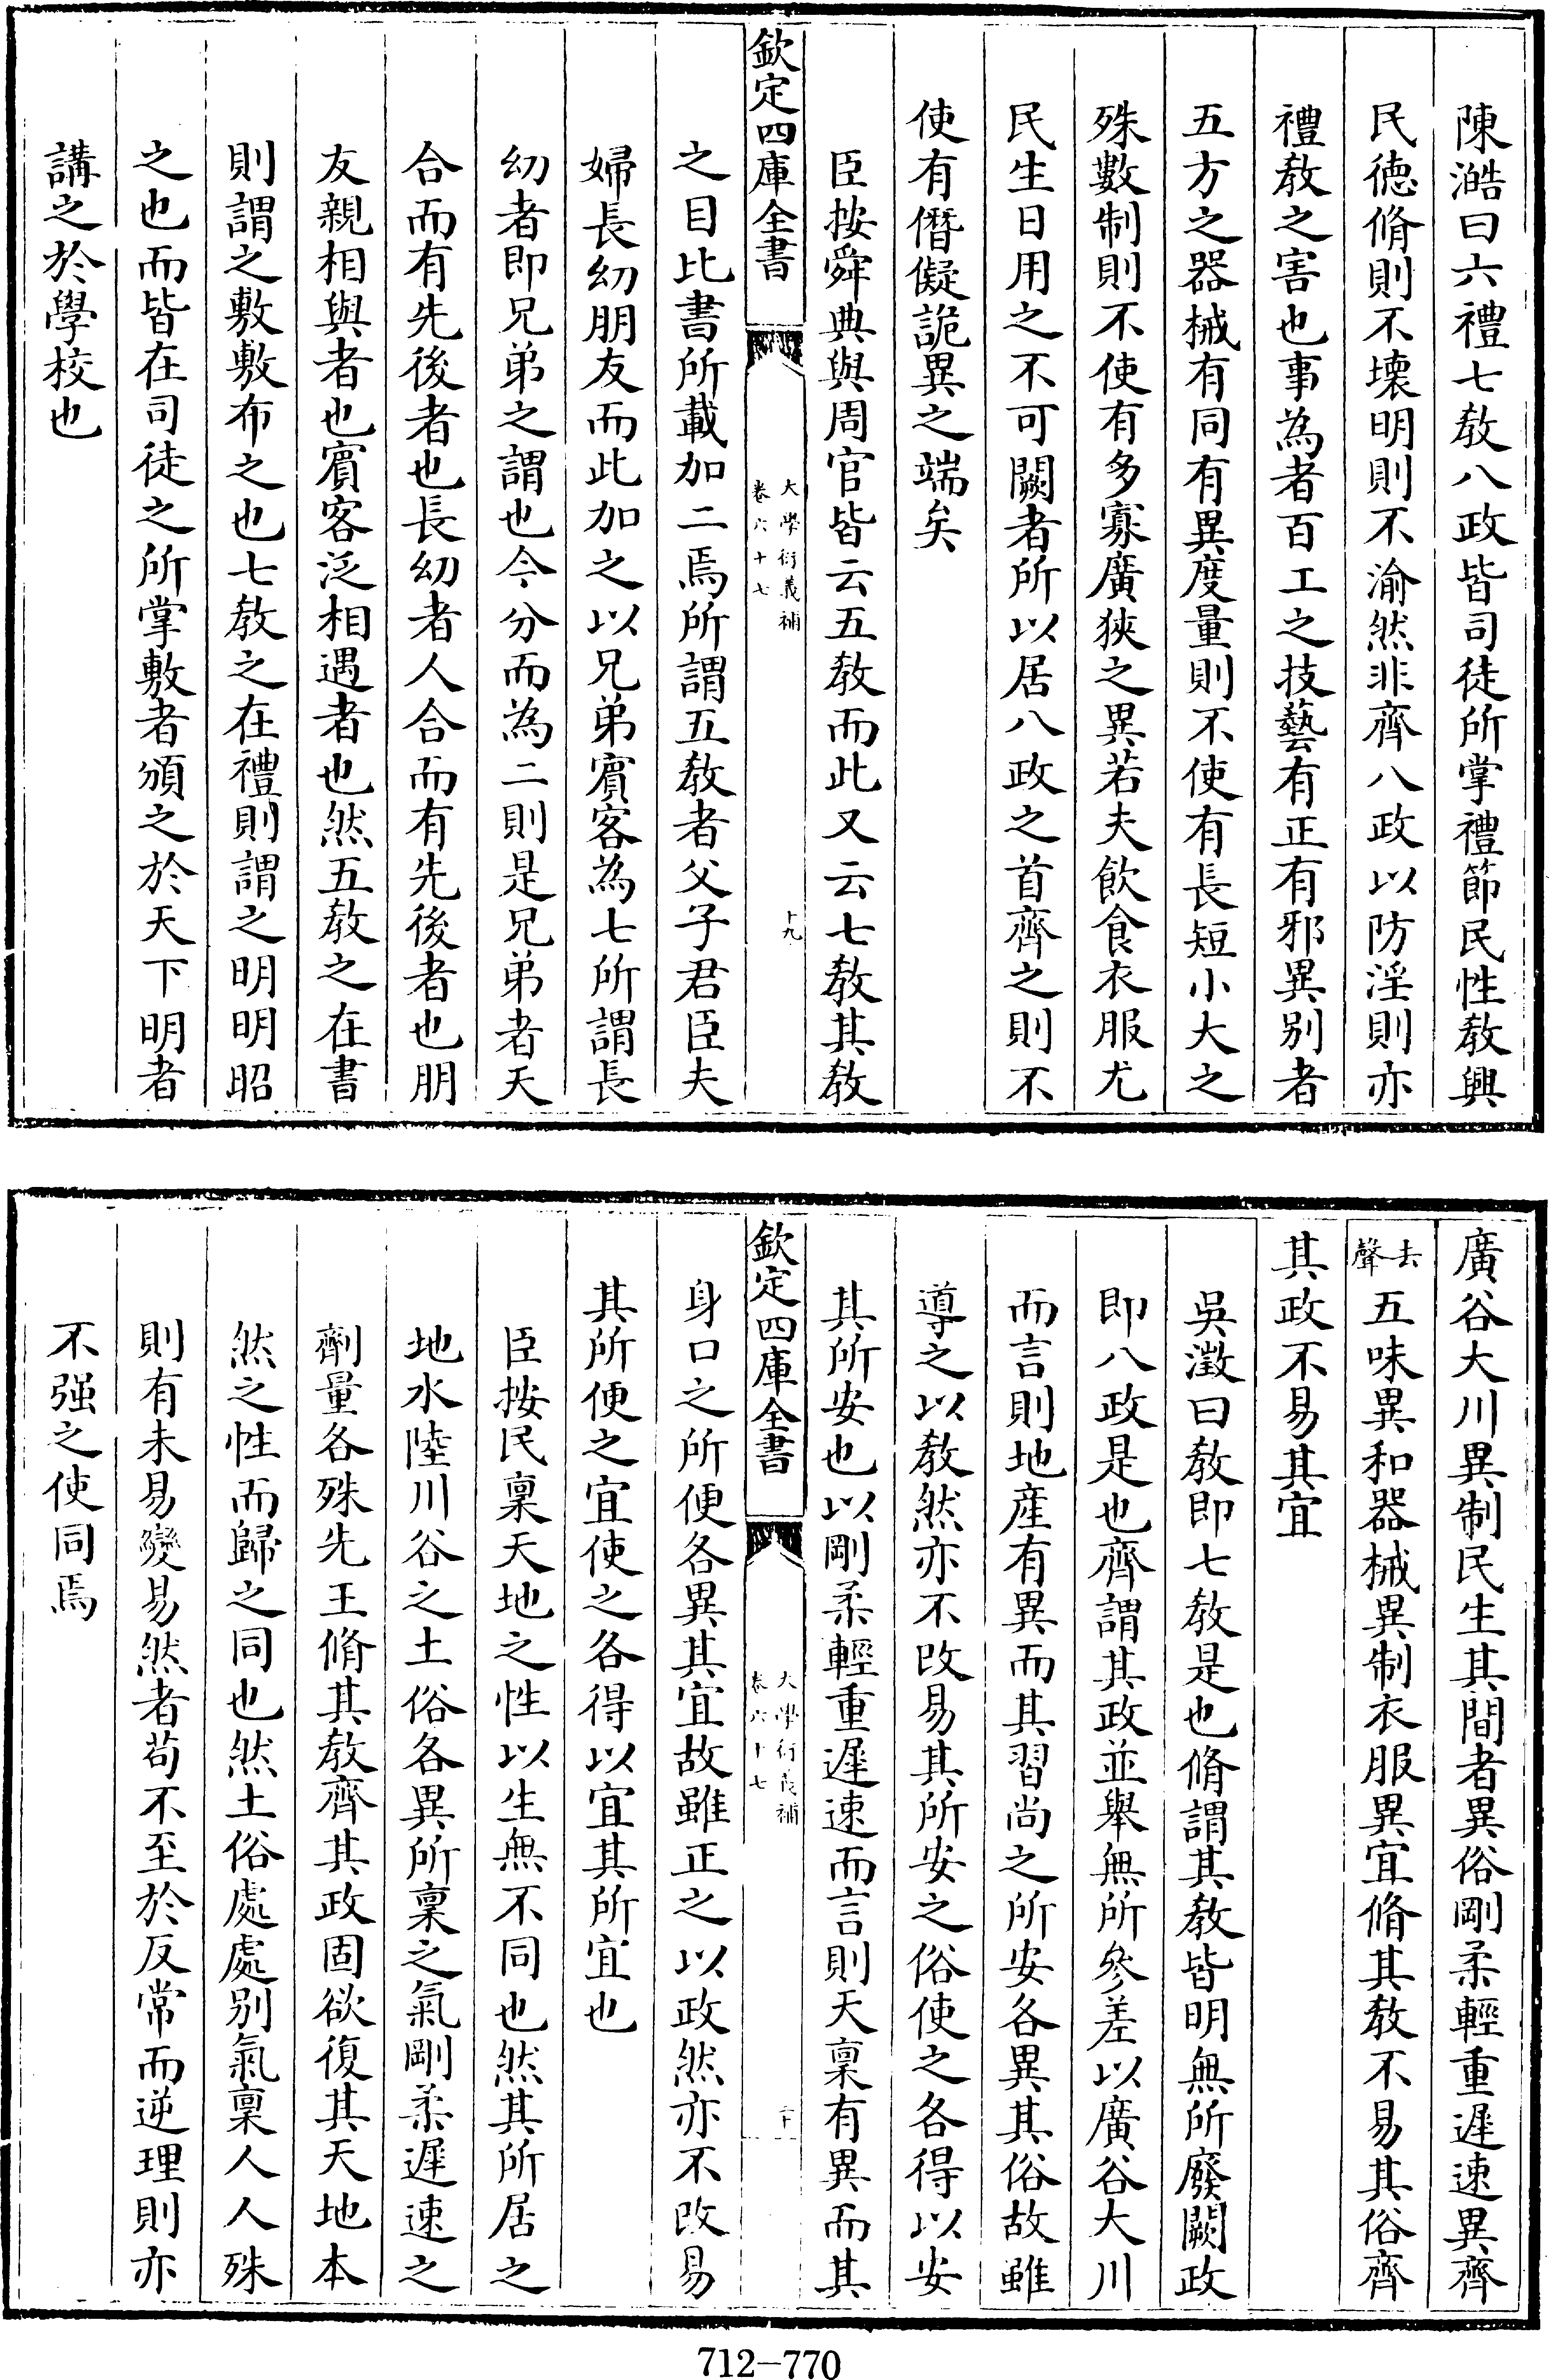 陳澔曰六禮七教八政皆司徒所掌禮節民性教興
民徳脩則不壊明則不渝然非齊八政以防淫則亦
禮教之害也事為者百工之技藝有正有邪異别者
五方之器械有同有異度量則不使有長短小大之
殊數制則不使有多寡廣狹之異若夫飲食衣服尤
民生日用之不可闕者所以居八政之首齊之則不
使有僭儗詭異之端矣
臣按舜典與周官皆云五教而此又云七教其教
欽定四庫全書
大學衍義補
卷六十七
十九
之目比書所載加二焉所謂五教者父子君臣夫
婦長幼朋友而此加之以兄弟賓客為七所謂長
幼者即兄弟之謂也今分而為二則是兄弟者天
合而有先後者也長幼者人合而有先後者也朋
友親相與者也賓客泛相遇者也然五教之在書
則謂之敷敷布之也七教之在禮則謂之明明昭
之也而皆在司徒之所掌敷者頒之於天下明者
講之於學校也
廣谷大川異制民生其間者異俗剛柔輕重遲速異齊
去聲五味異和器械異制衣服異宜脩其教不易其俗齊
其政不易其宜
吳澂曰教即七教是也脩謂其教皆明無所廢闕政
即八政是也齊謂其政並舉無所參差以廣谷大川
而言則地産有異而其習尚之所安各異其俗故雖
導之以教然亦不改易其所安之俗使之各得以安
其所安也以剛柔輕重遲速而言則天稟有異而其
欽定四庫全書
大學衍義補
卷六十七
二十
身口之所便各異其宜故雖正之以政然亦不改易
其所便之宜使之各得以宜其所宜也
臣按民稟天地之性以生無不同也然其所居之
地水陸川谷之土俗各異所稟之氣剛柔遲速之
劑量各殊先王脩其教齊其政固欲復其天地本
然之性而歸之同也然土俗處處别氣稟人人殊
則有未易變易然者苟不至於反常而逆理則亦
不强之使同焉
712-770